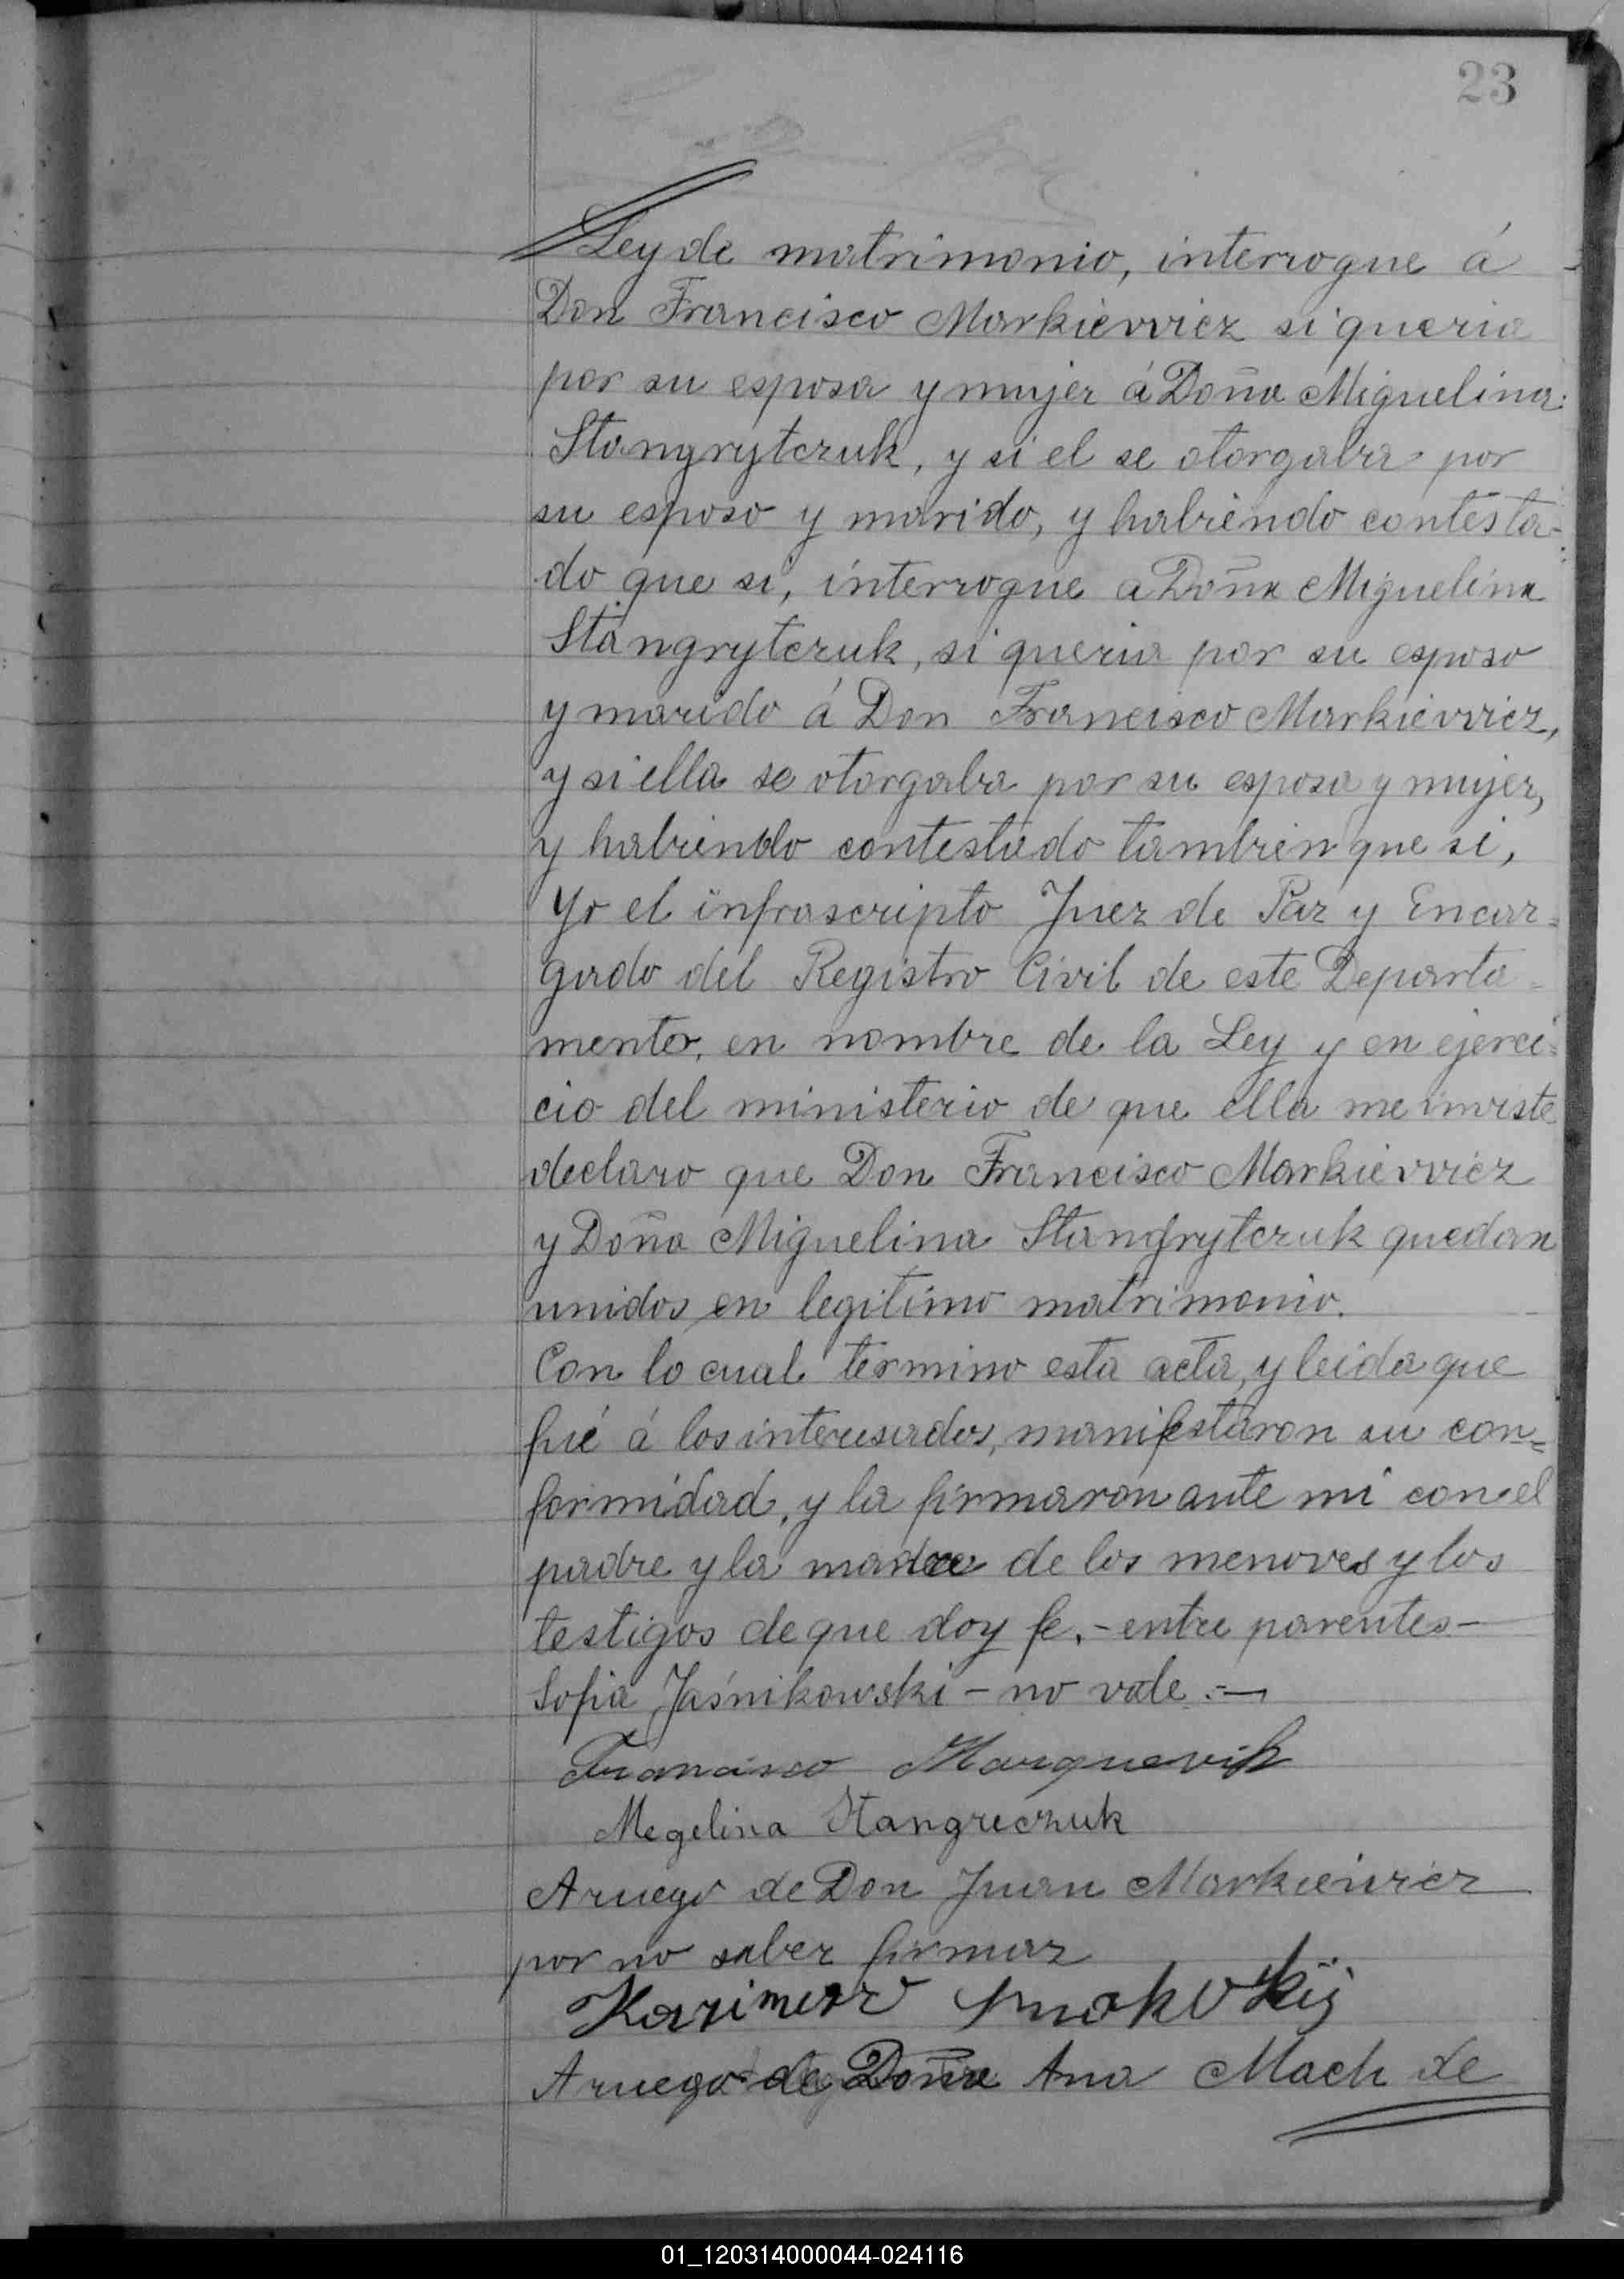 23
Ley de matrimonio, interrogue á
Don Francisco Markievvicz si queria
por su esposa y mujer á Doña Miguelina
Stangrytczuk, y si el se otorgaba por
su esposo y marido, y habiendo contesta-
do que si, interrogue a Doña Miguelina
Stangrytczuk, si queria por su esposo
y marido á Don Francisco Markievvicz,
y si ella se otorgaba por su esposa y mujer,
y habiendo contestado tambien que si,
Yo el infrascripto Juez de Paz y Encar=
gado del Registro Civil de este Departa=
mento, en nombre de la Ley y en ejerci=
cio del ministerio de que ella me inviste
declaro que Don Francisco Markievvicz
y Doña Miguelina Stangrytczuk quedan
unidos en legitimo matrimonio.
Con lo cual termino esta acta, y leida que
fué á los interesados, manifestaron su con=
formidad, y la firmaron ante mi con el
padre y la madre de los menores y los
testigos de que doy fe.- entre parentes-
Sofia Jaśnikowski - no vale.-
Francisco Marquevich
Megelina Stangreczuk
Aruego de Don Juan Markievicz
por no saber firmar
Kazimerz
Aruego de Doña Ana Mach de
01_120314000044-024116